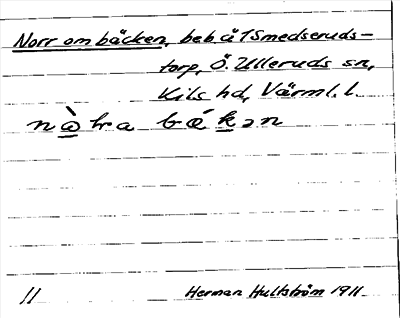 Norr om bäcken, beb. å 1 Smedseruds-
torp, Ö. Ulleruds sn,
Kils hd, Värml. l.
nò̱ra bǽḵən
11 Herman Hultström 1911